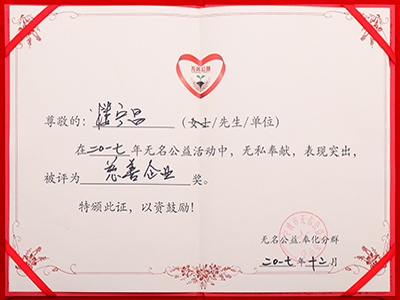 尊敬的：潘宁昌（女士/先生/单位）
在二〇一七年无名公益活动中，无私奉献，表现突出，
被评为慈善企业奖。
特颁此证，以资鼓励！
无名公益奉化分群
二〇一七年十二月